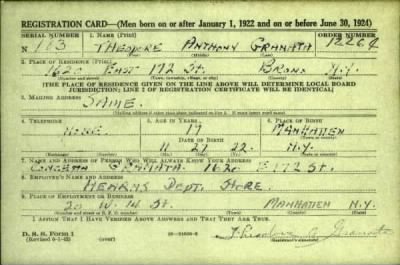 REGISTRATION CARD—(Men born on or after January 1, 1922 and on or before June 30, 1924)
SERIAL NUMBER 1. NAME (Print) ORDER NUMBER
N 113 THEODORE ANTHONY GRANATA 12264
2. PLACE OF RESIDENCE (Print)
1620 EAST 172 ST. BRONX N.Y.
(Number and street) (Town, township, village, or city) (County) (State)
[THE PLACE OF RESIDENCE GIVEN ON THE LINE ABOVE WILL DETERMINE LOCAL BOARD
JURISDICTION; LINE 2 OF REGISTRATION CERTIFICATE WILL BE IDENTICAL]
3. MAILING ADDRESS
SAME.
[Mailing address if other than place indicated on line 2. If same insert word same]
4. TELEPHONE 5. AGE IN YEARS 6. PLACE OF BIRTH
NONE 19 MANHATTEN
DATE OF BIRTH
11 27 22 N.Y.
7. NAME AND ADDRESS OF PERSON WHO WILL ALWAYS KNOW YOUR ADDRESS
GRANATA 1620 E 172 ST.
8. EMPLOYER'S NAME AND ADDRESS
HEARNS DEPT. STORE
9. PLACE OF EMPLOYMENT OR BUSINESS
20 W. 14 ST. MANHATTEN N.Y.
(Number and street or R. F. D. number) (Town) (County) (State)
I AFFIRM THAT I HAVE VERIFIED ABOVE ANSWERS AND THAT THEY ARE TRUE.
D. S. S. Form 1
(over)